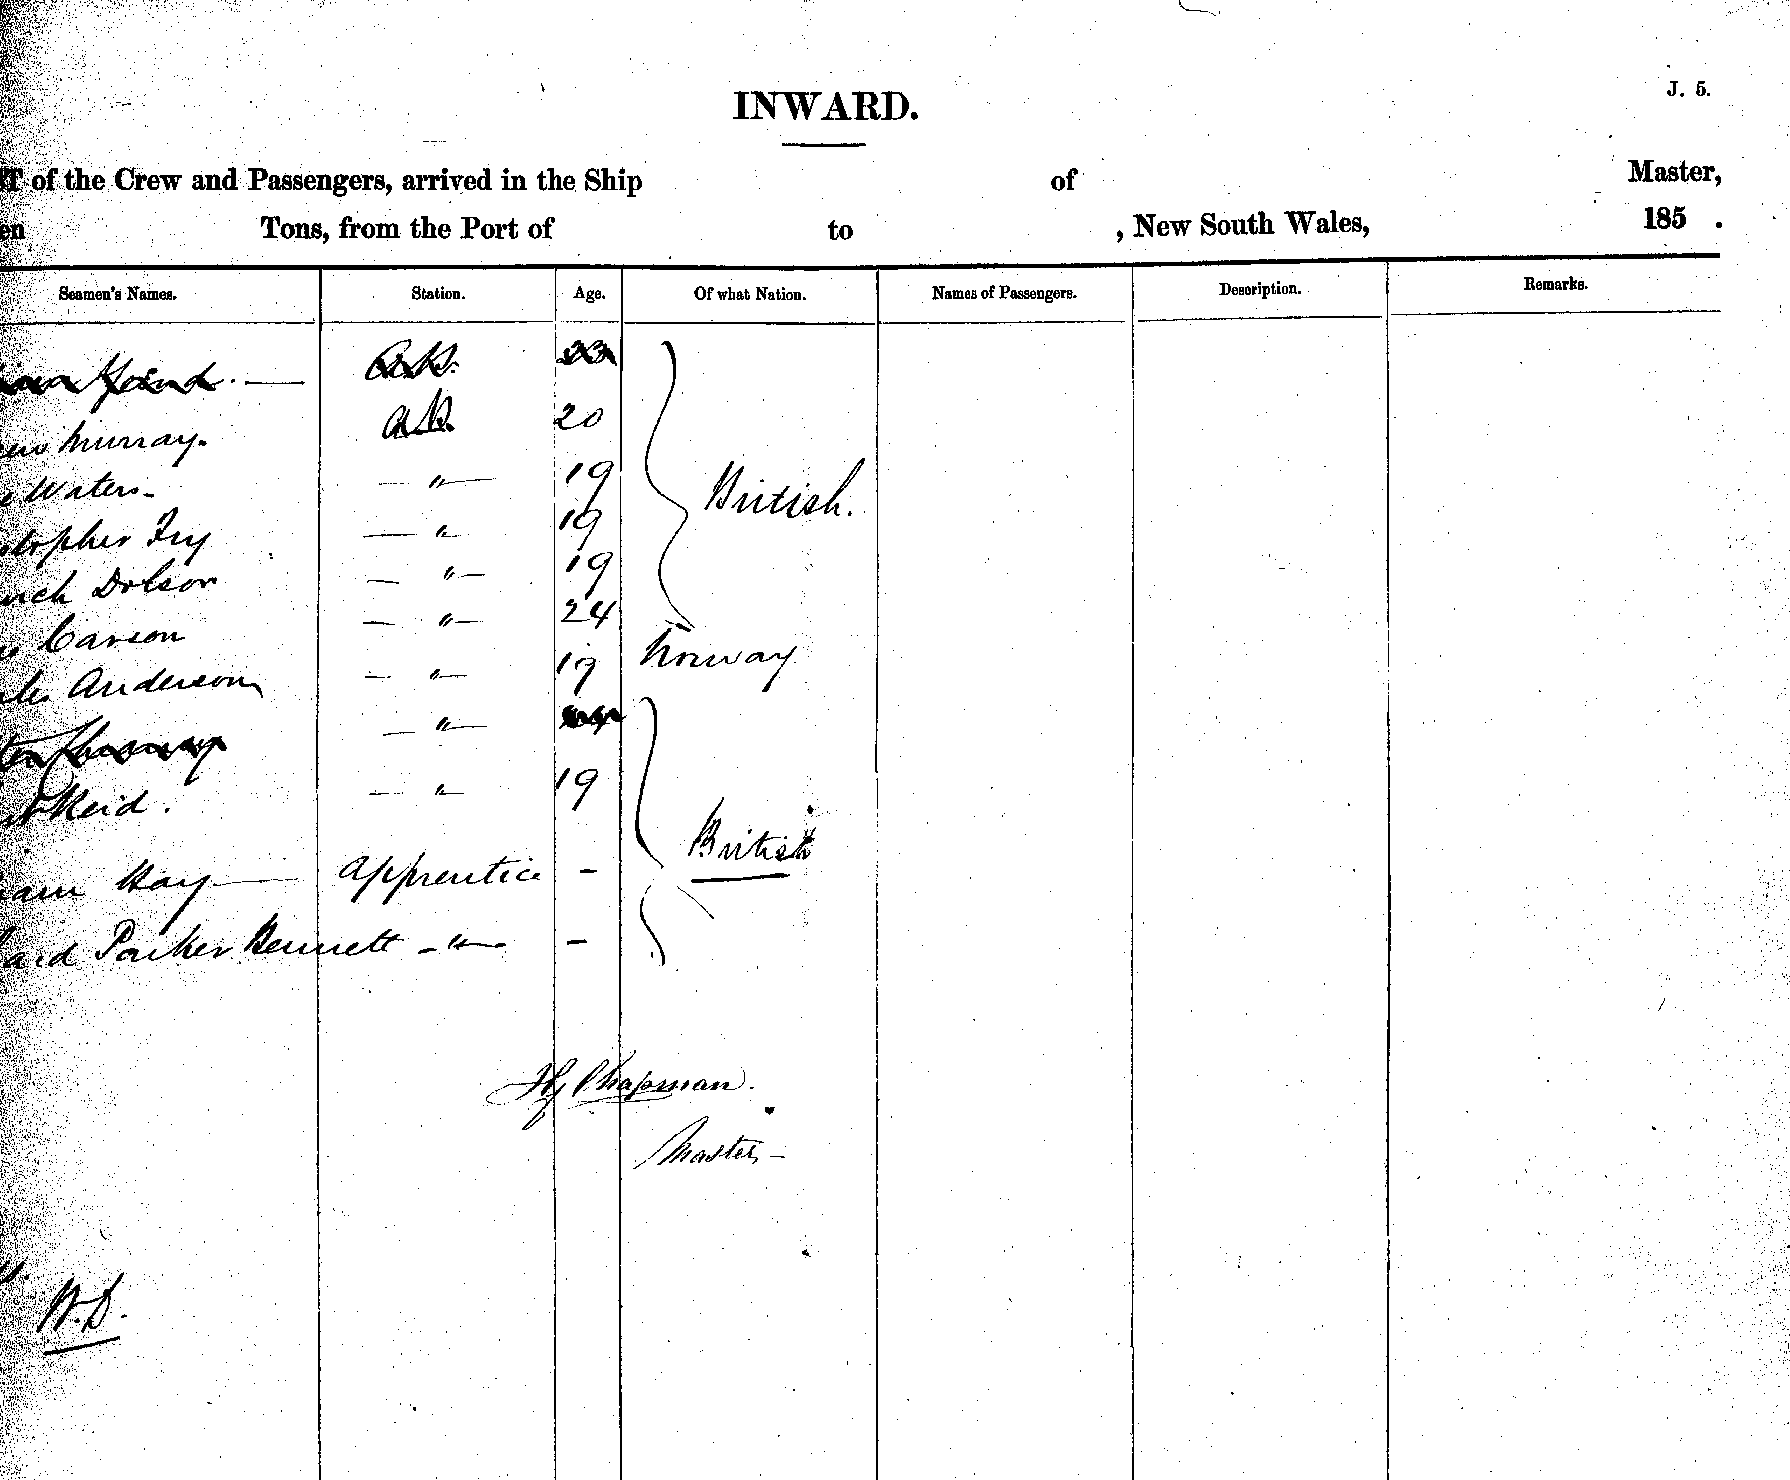 INWARD.
J. 5.
of the Crew and Passengers, arrived in the Ship of Master,
Tons, from the Port of to , New South Wales, 185 .
Seamen's Names. Station. Age. Of what Nation. Names of Passengers. Description. Remarks.
A.B.
Murray. A.B. 20
Waters - — " — 19 British.
Fry — " — 19
Dobson — " — 19
Carson — " — 24
Anderson — " — 19 Norway
— " —
Reid. — " — 19
Hay — Apprentice - British
Parker Bennett - " — -
Hy Chapman.
Master -
W.D.